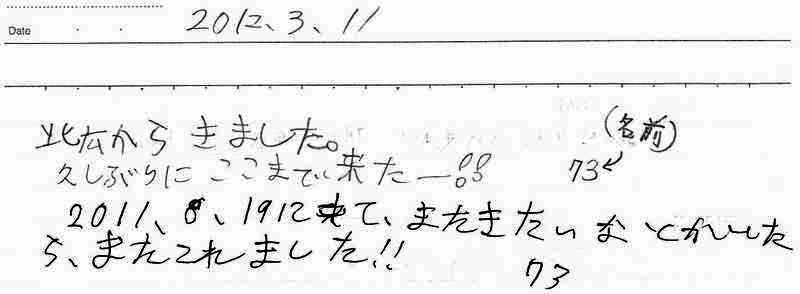 Date 2012、3、11
北広から きました。 (名前)
久しぶりに ここまで 来たー!! 73
2011、8、19に来て、またきたいな とかいた
ら、またこれました!!
73